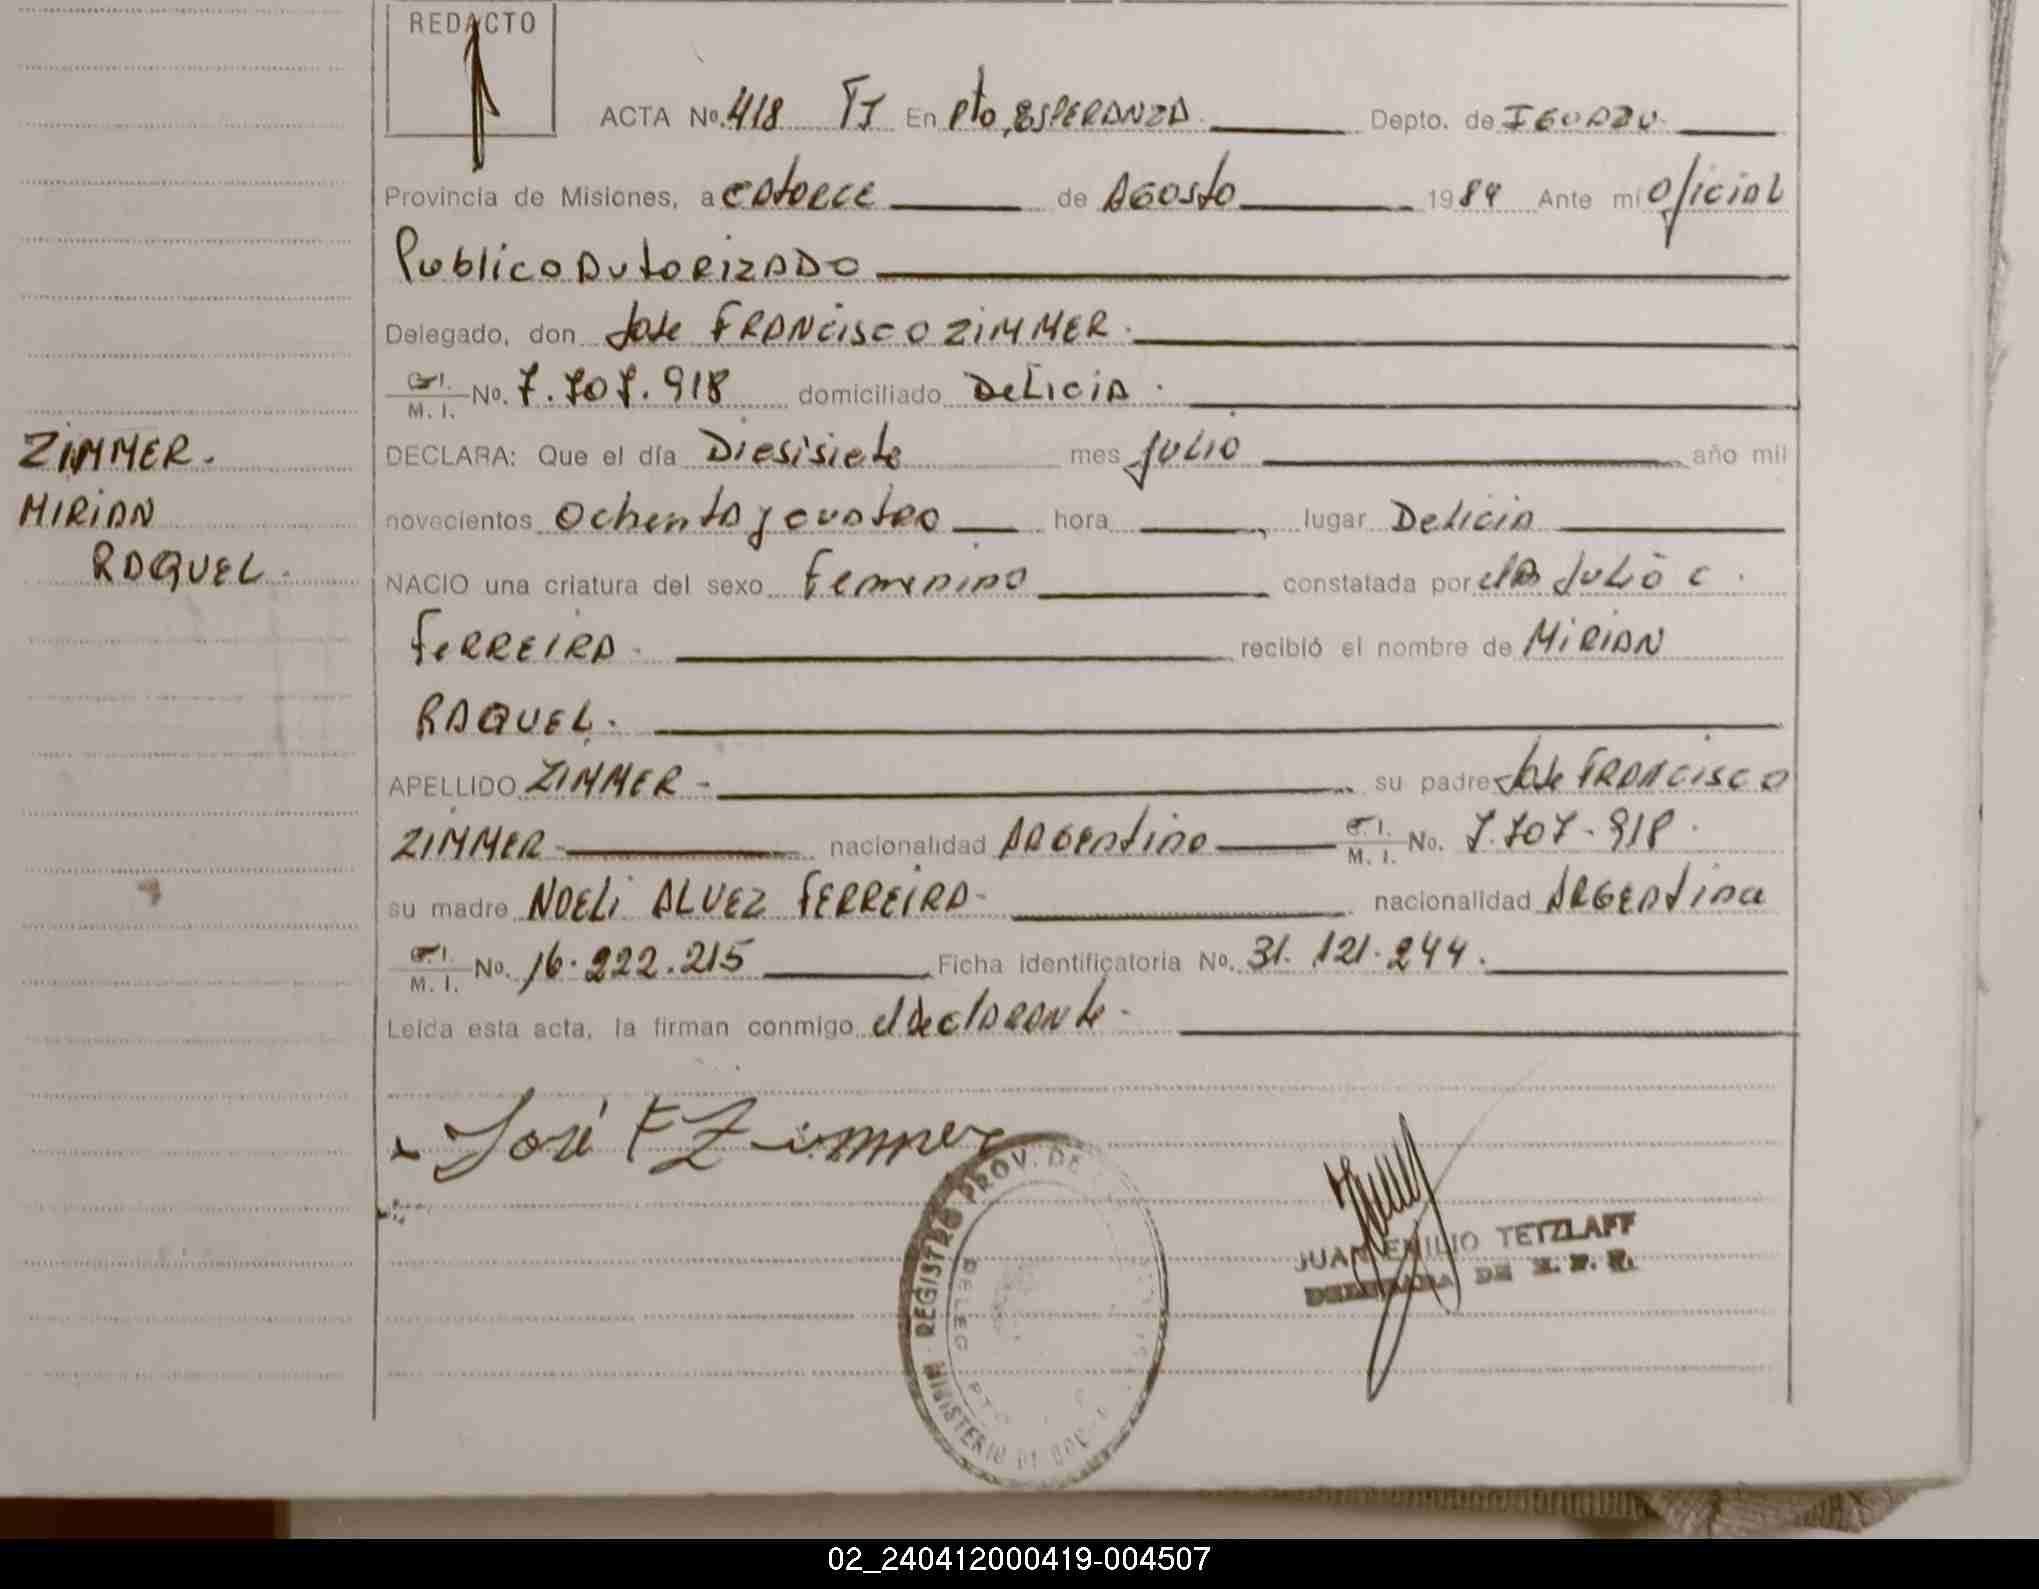 REDACTO
ACTA Nº. 418 TI En Pto, ESPERANZA Depto. de IGUAZU
Provincia de Misiones, a CAtorce de AGosto 1984 Ante mi Oficial
Publico Autorizado
Delegado, don Jose FRANCISCO ZIMMER.
C. I. / M. I. No. 7.707.918 domiciliado DeLiciA.
ZIMMER.
DECLARA: Que el día Diesisiete mes Julio año mil
MIRIAN
novecientos Ochenta y cuatro hora lugar Delicia
RAQUEL.
NACIO una criatura del sexo Femenino constatada por Julio C.
FeRREIRA. recibió el nombre de MIRIAN
RAQUEL.
APELLIDO ZIMMER - su padre Jose FRANCISCO
ZIMMER nacionalidad ARGentino C. I. / M. I. No. 7.707.918.
su madre NOELI ALVEZ FERREIRA- nacionalidad ARGentina
C. I. / M. I. No. 16.222.215 Ficha Identificatoria No. 31.121.244.
Leída esta acta, la firman conmigo el declarante-
José F Zimmer
MINISTERIO DE GOB. REGISTRO PROV. DE
DELEG. PTO
JUAN EMILIO TETZLAFF
DE
02_240412000419-004507